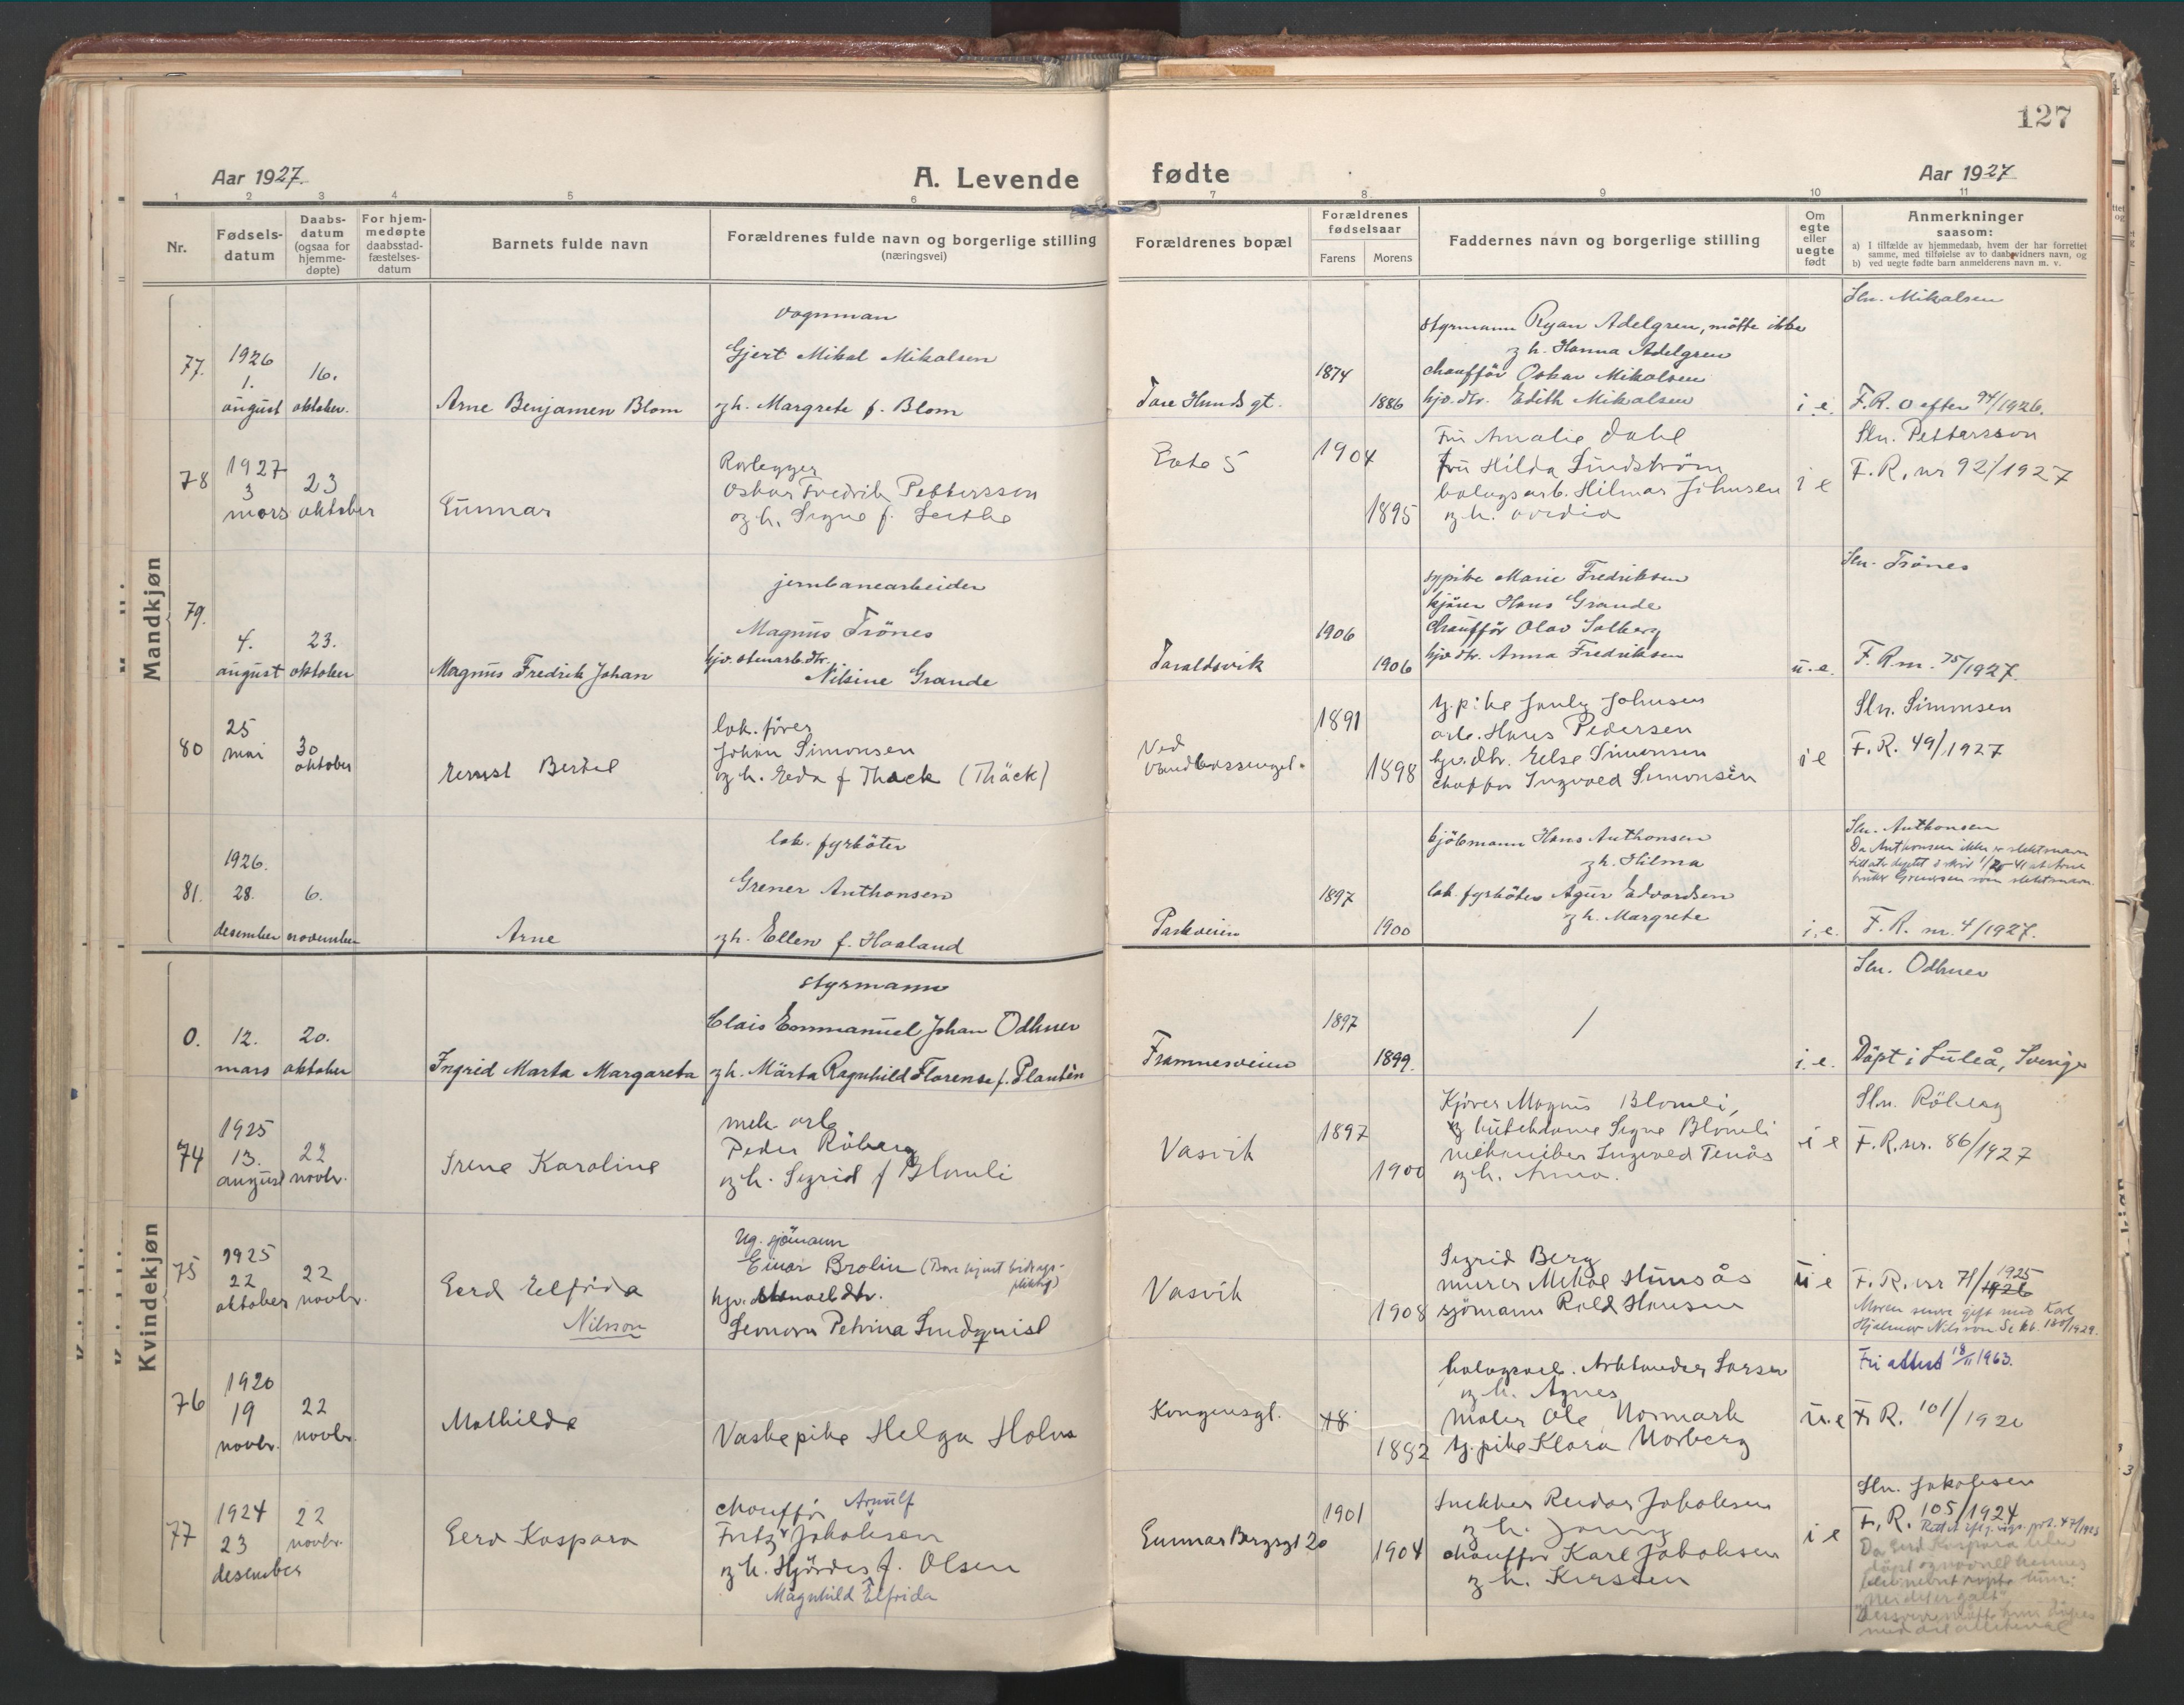 127
Aar 1927.
A. Levende
fødte
Aar 1927
1 2 3 4 5 6 7 8 9 10 11
Nr.
Fødsels-
datum
Daabs-
datum
(ogsaa for
hjemme-
døpte)
For hjem-
medøpte
daabsstad-
fæstelses-
datum
Barnets fulde navn
Forældrenes fulde navn og borgerlige stilling
(næringsvei)
Forældrenes bopæl
Forældrenes
fødselsaar
Farens Morens
Faddernes navn og borgerlige stilling
Om
egte
eller
uegte
født
Anmerkninger
saasom:
a) I tilfælde av hjemmedaab, hvem der har forrettet
samme, med tilføielse av to daabsvidners navn, og
b) ved uegte fødte barn anmelderens navn m. v.
Mandkjøn
77.
1926
1.
august
16.
oktober.
Arne Benjamen Blom
vognman
Gjert Mikal Mikalsen
og h. Margrete f. Blom
Tore Hunds gt.
1874
1886
styrmann Ryan Adelgren, måtte ikke
og h. Hanna Adelgren
chaufför Oskar Mikalsen
hjv. dtr. Edith Mikalsen
i. e.
Sln. Mikalsen
F.R. 0 efter 94/1926.
78
1927
3
mars
23
oktober
Gunnar
Rørlegger
Oskar Fredrik Pettersson
og h. Signe f.
5
1904
1895
Fru Amalie Dahl
Fru Hilda Lindström
bolagsarb. Hilmar Johnsen
og h.
i e
Sln. Pettersson
F. R. nr 92/1927
79.
4.
august
23.
oktober
Magnus Fredrik Johan
jernbanearbeider
Magnus Trönes
hjv. stenarb. dtr.
Nilsine Grande
Taraldsvik
1906
1906
sypike Marie Fredriksen
kjörer Hans Grande
Chaufför Olav Solberg
hjv. dtr. Anna Fredriksen
u. e.
Sln. Trönes
F. R nr. 75/1927.
80
25
mai
30
oktober
Ernst Bertel
lok. fører
Johan Simonsen
og h. Eda f Thack (Thäck)
Ved
1891
1898
tj. pike Jenly Johnsen
arb. Hans Pedersen
hjv. dtr. Else Simonsen
chaffør Ingvald Simonsen
i e
Sln. Simonsen
F. R. 49/1927
81.
1926.
28.
desember
6.
november
Arne
lok. fyrböter
Grener Anthonsen
og h. Ellen f. Haaland
Parkveien
1897
1900
kjöbmann Hans Anthonsen
og h. Hilma
lok. fyrböter Agur Edvardsen
og h. Margrete
i. e.
Sln. Anthonsen
Da Anthonsen ikke er slektsnavn
bruke Grenersen som slektsnavn.
F. R. nr. 4/1927.
Kvindekjøn
0.
12.
mars
20.
oktober
Ingrid Marta Margareta
styrmann
Clais Emmanuel Johan Odhner
og h. Märta Ragnhild Florense f. Plantén
Framnesveien
1897
1899.
/
i. e.
Sln. Odhner
Döpt i Luleå, Sverige
74
1925
13.
august
22
novbr.
Irene Karoline
mek arb
Peder Röberg
og h. Sigrid f Blomli
Vasvik
1897
1900
Kjører Magnus Blomli,
og butekdame Signe Blomli
mekaniker Ingvald Tenås
og h. Anna.
i e
Sln. Röberg
F. R. nr. 86/1927
75
1925
22
oktober
22
novbr.
Gerd Elfrida
Nilsson
Ug. sjömann
Einar Brolin (Bare kjent bidrags-
pliktig)
hjv.
Leonora Petrina Lindquist
Vasvik
1908
Sigrid Berg
murer Mikal Hunsås
sjömann Rold Hansen
u e
F. R. nr 71/1925
1926
Moren senere gift med Karl
Hjalmar Nilsson Se kb. 130/1929.
76
1920
19
novbr.
22
novbr.
Mathilde
Vaskepike Helga Holm
Kongensgt.
18
1892
bolagsarb. Larsen
og h. Agnes
Maler Ole Normark
tj. pike Klara Norberg
u. e
Fri attest 18/11 1963.
F. R. 101/1920
77
1924
23
desember
22
novbr.
Gerd Kaspara
chauffør Arnulf
Fritz Jakobsen
og h. Hjördis f. Olsen
Magnhild Elfrida
Gunnar Bergsgt 20
1901
1904
Snekker Reidar Jakobsen
og h. Jenny
chauffør Karl Jakobsen
og h. Kirsten
i e
Sln. Jakobsen
F. R. 105/1924
Da Gerd Kaspara blev
döpt og navnet hennes
blev nevnt ropte hun:
"Nei det er galt"